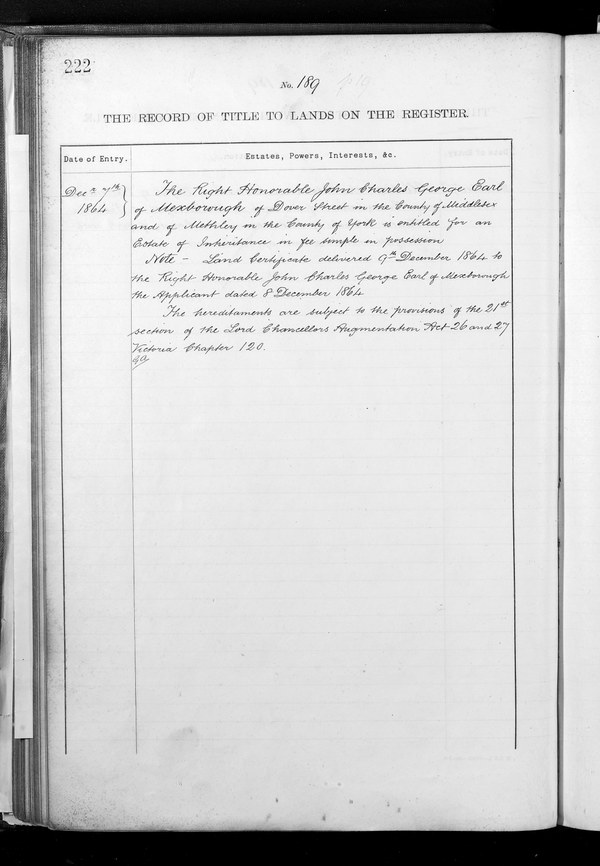 222
No. 189
THE RECORD OF TITLE TO LANDS ON THE REGISTER.
Date of Entry.
Estates, Powers, Interests, &c.
Decr 7th
1864
The Right Honorable John Charles George Earl
of Mexborough of Dover Street in the County of Middlesex
and of Methley in the County of York is entitled for an
Estate of Inheritance in fee simple in possession
Note - Land Certificate delivered 9th December 1864 to
the Right Honorable John Charles George Earl of Mexborough
the Applicant dated 8 December 1864
The hereditaments are subject to the provisions of the 21st
section of the Lord Chancellors Augmentation Act 26 and 27
Victoria Chapter 120.